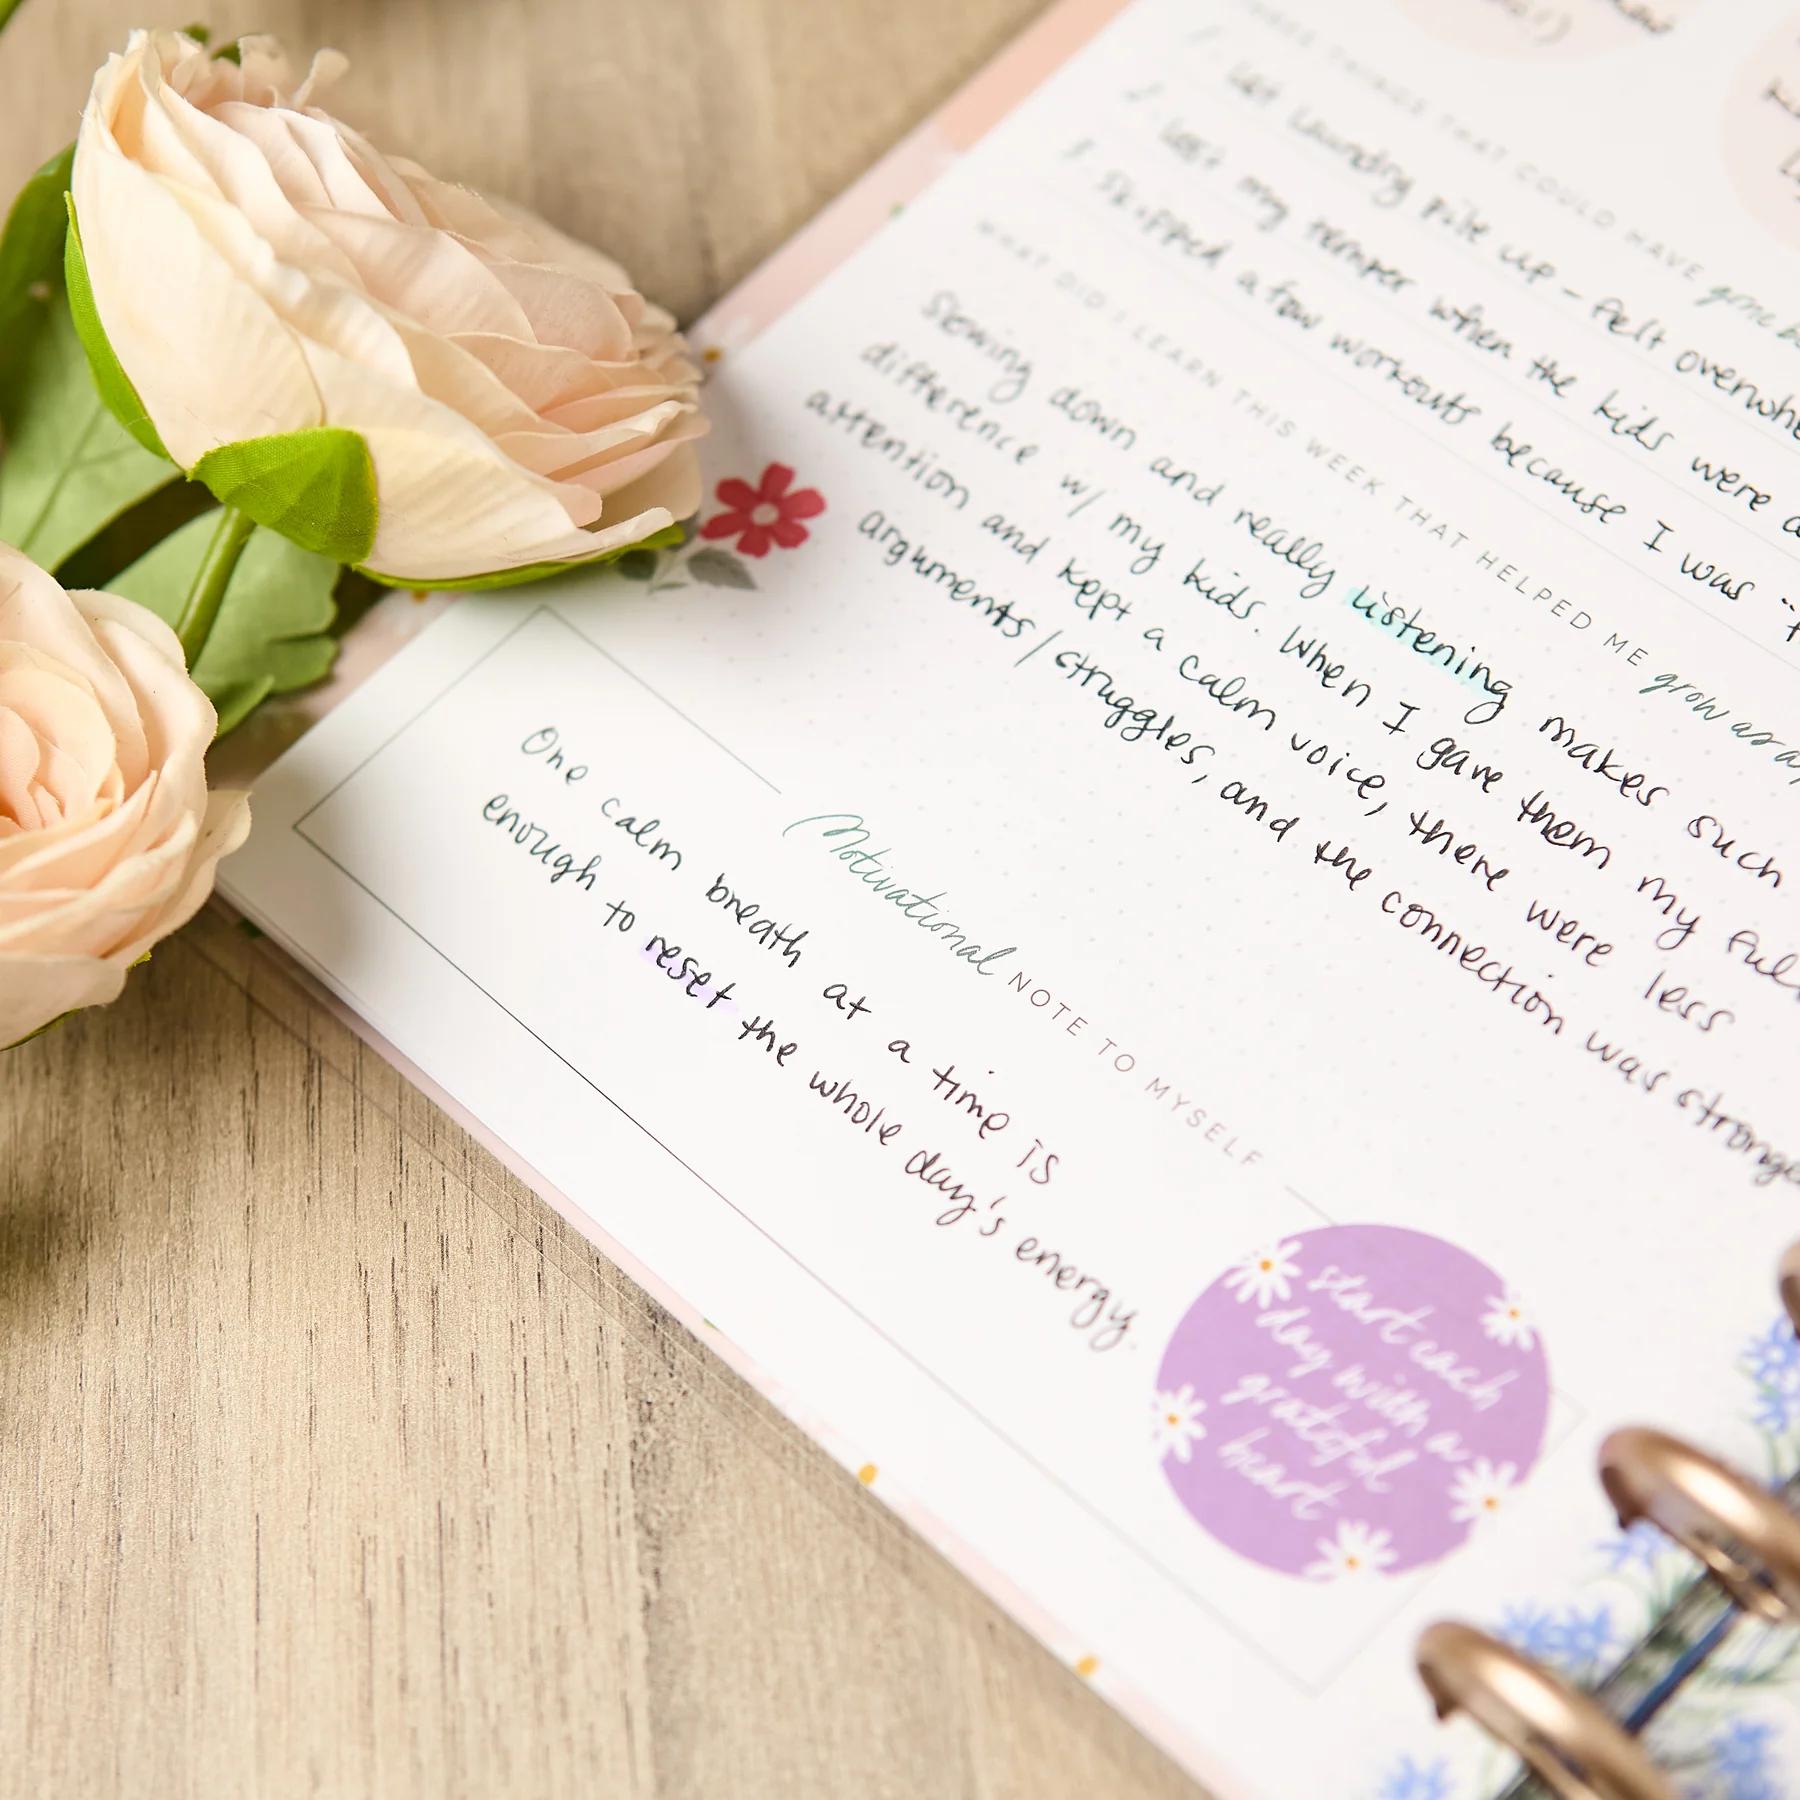 THINGS THAT COULD HAVE gone b
Let laundry pile up - felt overwhe
Lost my temper when the kids were
Skipped a few workouts because I was
WHAT DID I LEARN THIS WEEK THAT HELPED ME grow as a
Slowing down and really listening makes such
difference w/ my kids. When I gave them my full
attention and kept a calm voice, there were less
arguments/struggles, and the connection was stronge
Motivational NOTE TO MYSELF
One calm breath at a time is
enough to reset the whole day's energy.
start each
day with a
grateful
heart